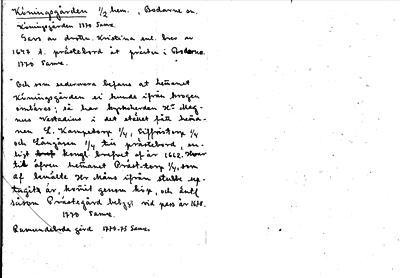 Köningsgården 1/2 hem., Bodarne sn.
Köningsgården 1770 Same.
Gavs av drottn. Kristina enl. brev av
1647 t. prästebord åt prästen i Bodarne.
1770 Same.
Och som sedermera befans at hemanet
Köningsgården ei kunde ifrån krogen
ombäres; så har kyrkoherden Hr Mag-
nus Vestadius i det stället fått hema-
nen L. Kampetorp 1/4, Siffristorp 1/4
och Långåsen 1/4 til prästebord, en-
ligt kongl. brefvet af år 1662.
til äfven hemanet Präst-torp 1/4, som
af bemälte Hr Måns ifrån stubbe up-
tagit är, komit genom köp, och
såsom Prästegård bebyz vid pass år 1678.
1770 Same.
Ramundeboda gård 1770-75 Same.